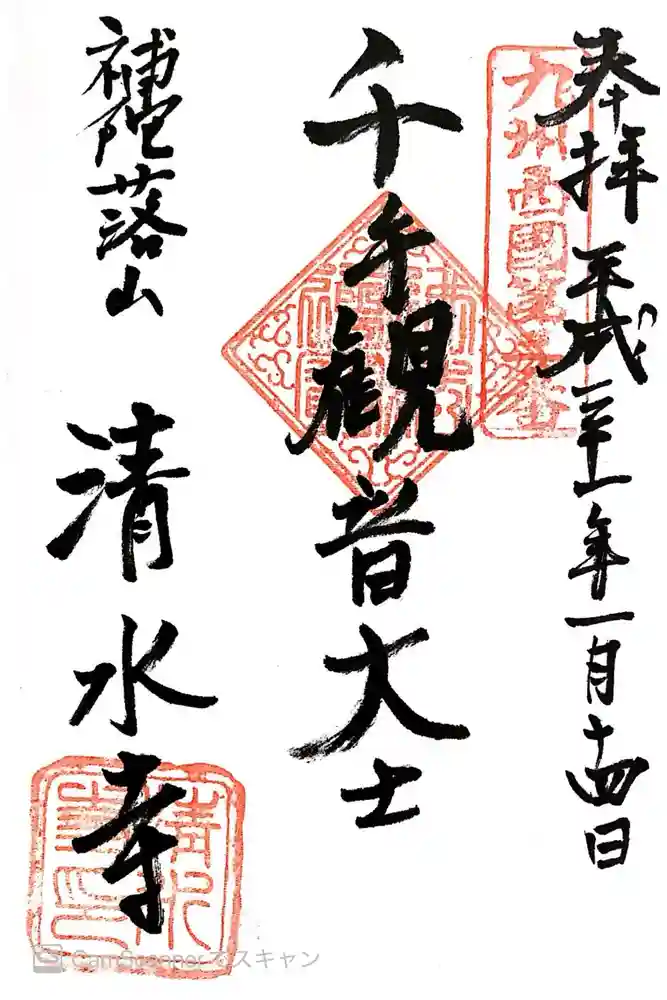 奉拝 平成二十一年一月十四日
九州西國第番
千手觀音大士
補陀落山
清水寺
CamScannerでスキャン